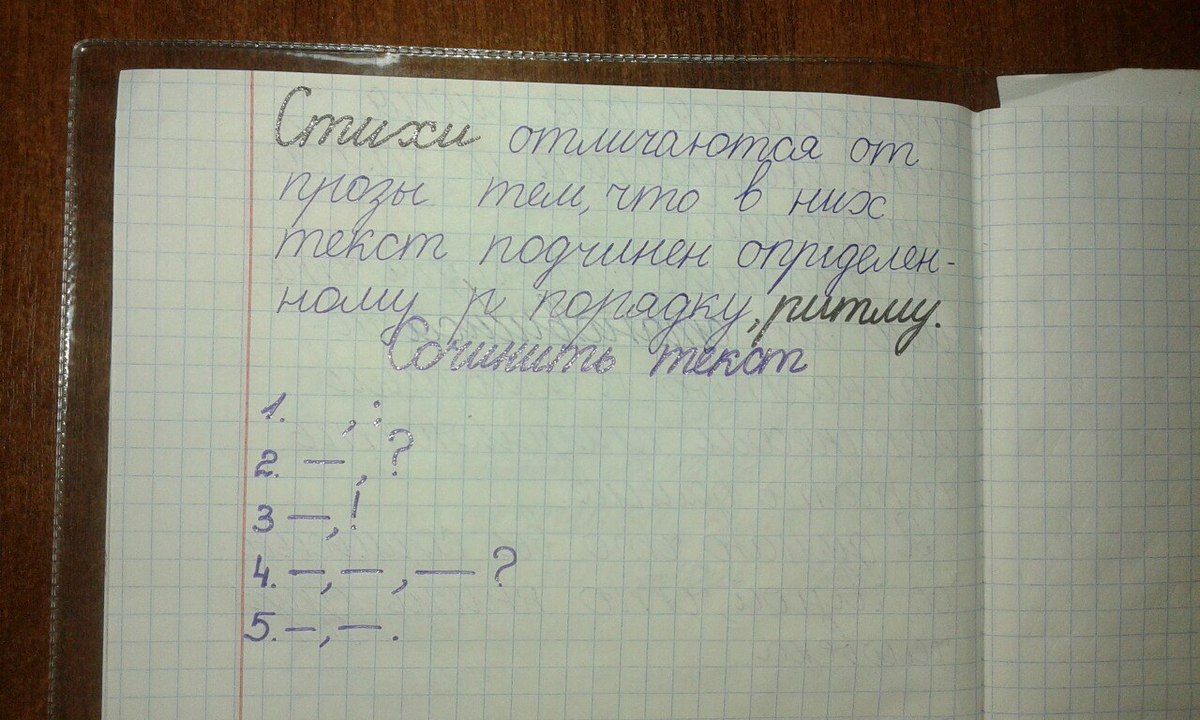 Стихи отличаются от
прозы тем, что в них
текст подчинен определен-
ному р порядку, ритму.
Сочинить текст
1. , :
2. — , ?
3 — , !
4. — , — , — ?
5. — , — .